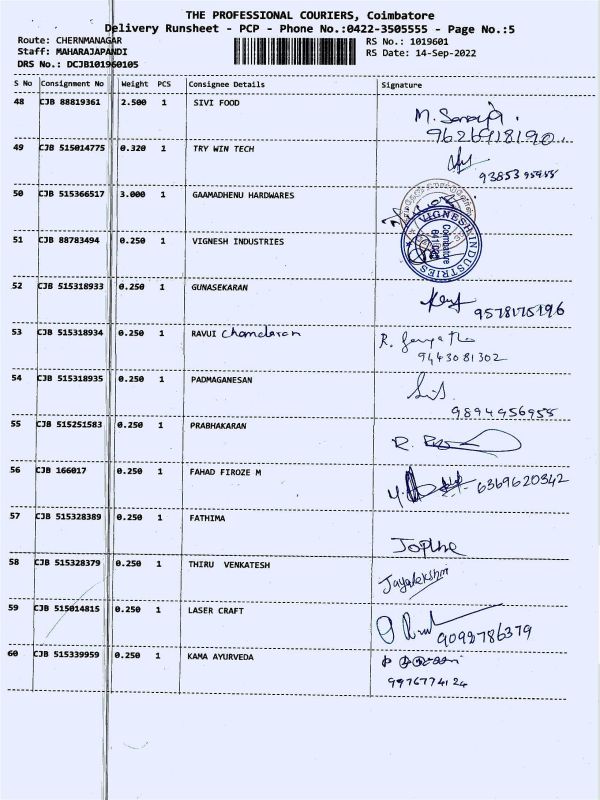 THE PROFESSIONAL COURIERS, Coimbatore
Delivery Runsheet - PCP - Phone No.:0422-3505555 - Page No.:5
Route: CHERNMANAGAR RS No.: 1019601
Staff: MAHARAJAPANDI RS Date: 14-Sep-2022
DRS No.: DCJB101960105
S No Consignment No Weight PCS Consignee Details Signature
48 CJB 88819361 2.500 1 SIVI FOOD
9626918190
49 CJB 515014775 0.320 1 TRY WIN TECH
93853 95955
50 CJB 515366517 3.000 1 GAAMADHENU HARDWARES
51 CJB 88783494 0.250 1 VIGNESH INDUSTRIES
VIGNESH INDUSTRIES
Coimbatore
52 CJB 515318933 0.250 1 GUNASEKARAN
9578175196
53 CJB 515318934 0.250 1 RAVUI Chandaran
9443081302
54 CJB 515318935 0.250 1 PADMAGANESAN
9894956955
55 CJB 515251583 0.250 1 PRABHAKARAN
R.
56 CJB 166017 0.250 1 FAHAD FIROZE M
6369620342
57 CJB 515328389 0.250 1 FATHIMA
58 CJB 515328379 0.250 1 THIRU VENKATESH
Jayalekshmi
59 CJB 515014815 0.250 1 LASER CRAFT
9092786379
60 CJB 515339959 0.250 1 KAMA AYURVEDA
9976774124